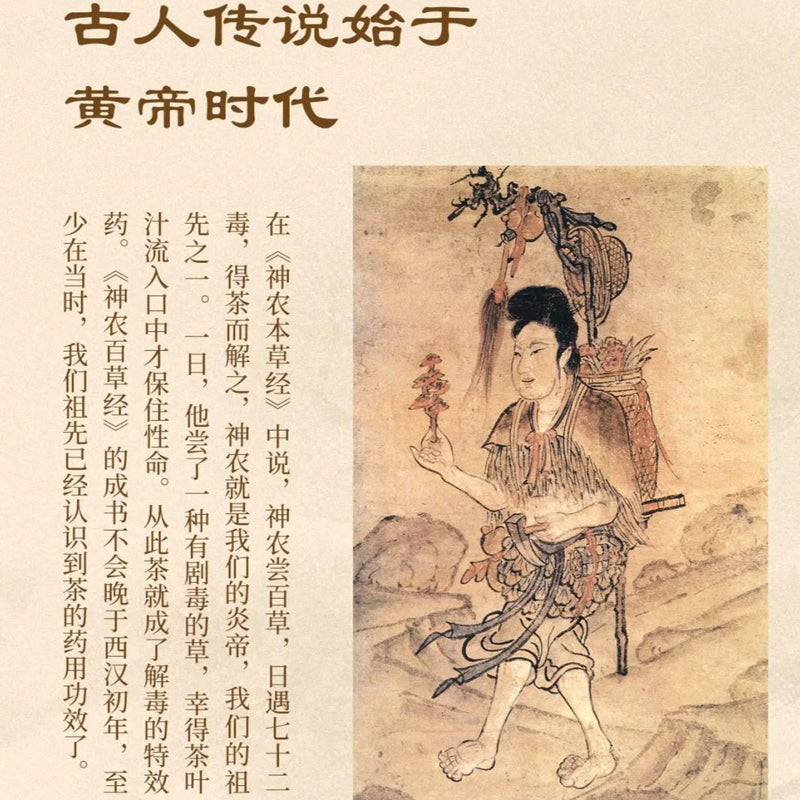 古人传说始于
黄帝时代
在《神农本草经》中说，神农尝百草，日遇七十二
毒，得茶而解之，神农就是我们的炎帝，我们的祖
先之一。一日，他尝了一种有剧毒的草，幸得茶叶
汁流入口中才保住性命。从此茶就成了解毒的特效
药。《神农百草经》的成书不会晚于西汉初年，至
少在当时，我们祖先已经认识到茶的药用功效了。